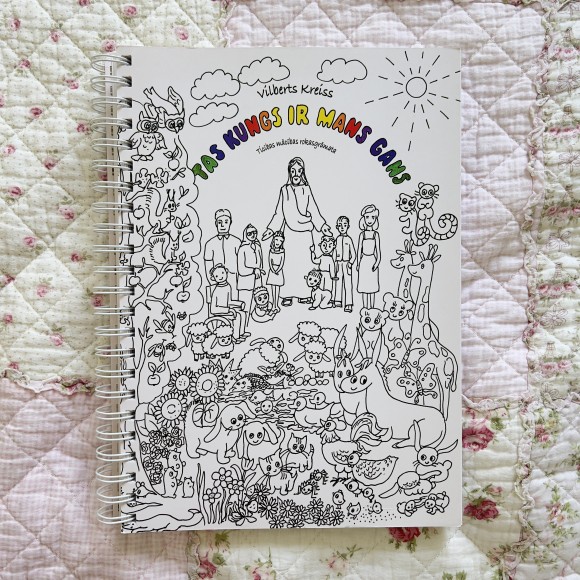 Vilberts Kreiss
TAS KUNGS IR MANS GANS
Ticības mācības rokasgrāmata